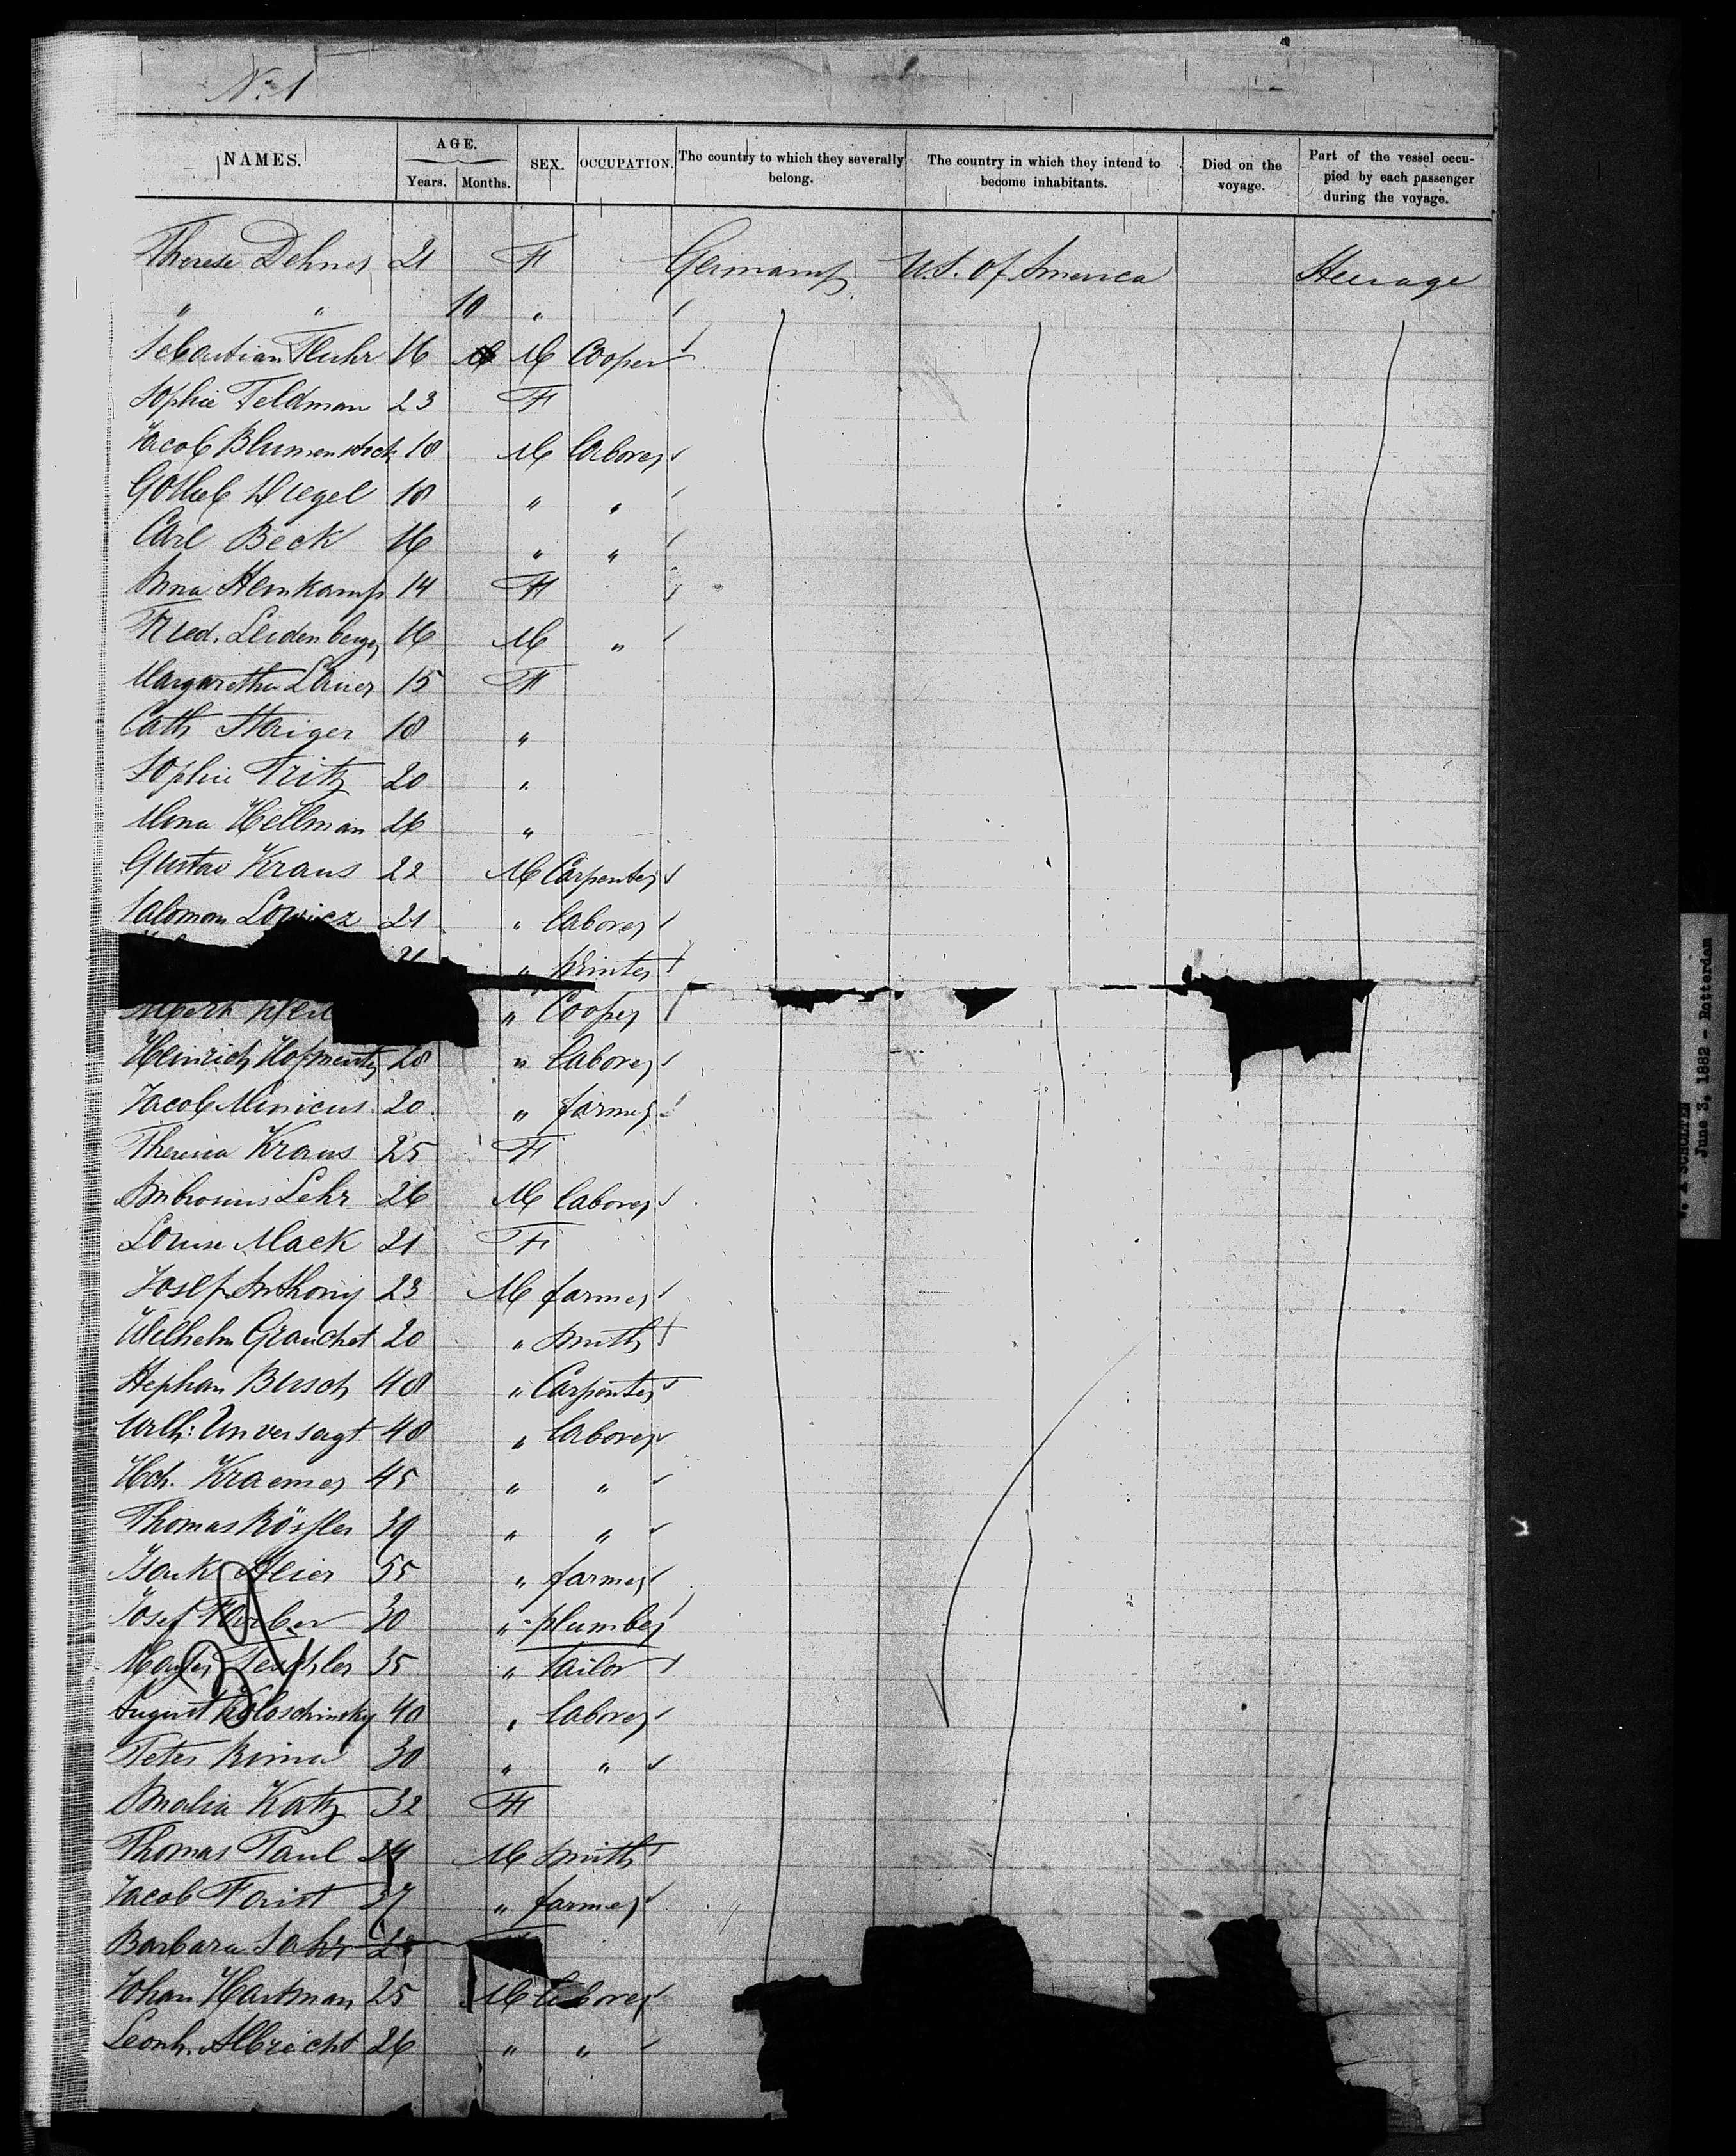 No 1
NAMES. AGE. Years. Months. SEX. OCCUPATION. The country to which they severally belong. The country in which they intend to become inhabitants. Died on the voyage. Part of the vessel occupied by each passenger during the voyage.
Therese Dehner 21 F Germany U.S. of America Steerage
" " 10 "
Sebastian Fluhr 16 M Cooper
Sophie Feldman 23 F
Jacob Blumenstock 18 M laborer
Gotlieb 18 " "
Carl Beck 16 " "
Anna Hemkamp 14 F
Fried. Leidenberger 16 M "
Margaretha Lauer 15 F
Cath Staiger 18 "
Sophie Fritz 20 "
Mina Hellman 26 "
Gustav Kraus 22 M Carpenter
Saloman 21 " laborer
21 " printer
Albert " Cooper
Heinrich 28 " laborer
Jacob Minicus 20 " farmer
Theresia Kraus 25 F
Ambrosius Lehr 26 M laborer
Louise Mack 21 F
Josef Anthony 23 M farmer
Wilhelm 20 " smith
Stephan Busch 48 " Carpenter
Wilh: Unversagt 48 " laborer
Hch. Kraemer 45 " "
Thomas Rössler 39 " "
Isaak Meier 55 " farmer
Josef Farber 30 " plumber
35 " tailor
August 40 " laborer
Peter 30 " "
Amalia Katz 32 F
Thomas Paul 24 M smith
Jacob Forist 37 " farmer
Barbara
Johan Hartman 25 M laborer
Leonh. Albrecht 26 " "
June 3, 1882 - Rotterdam